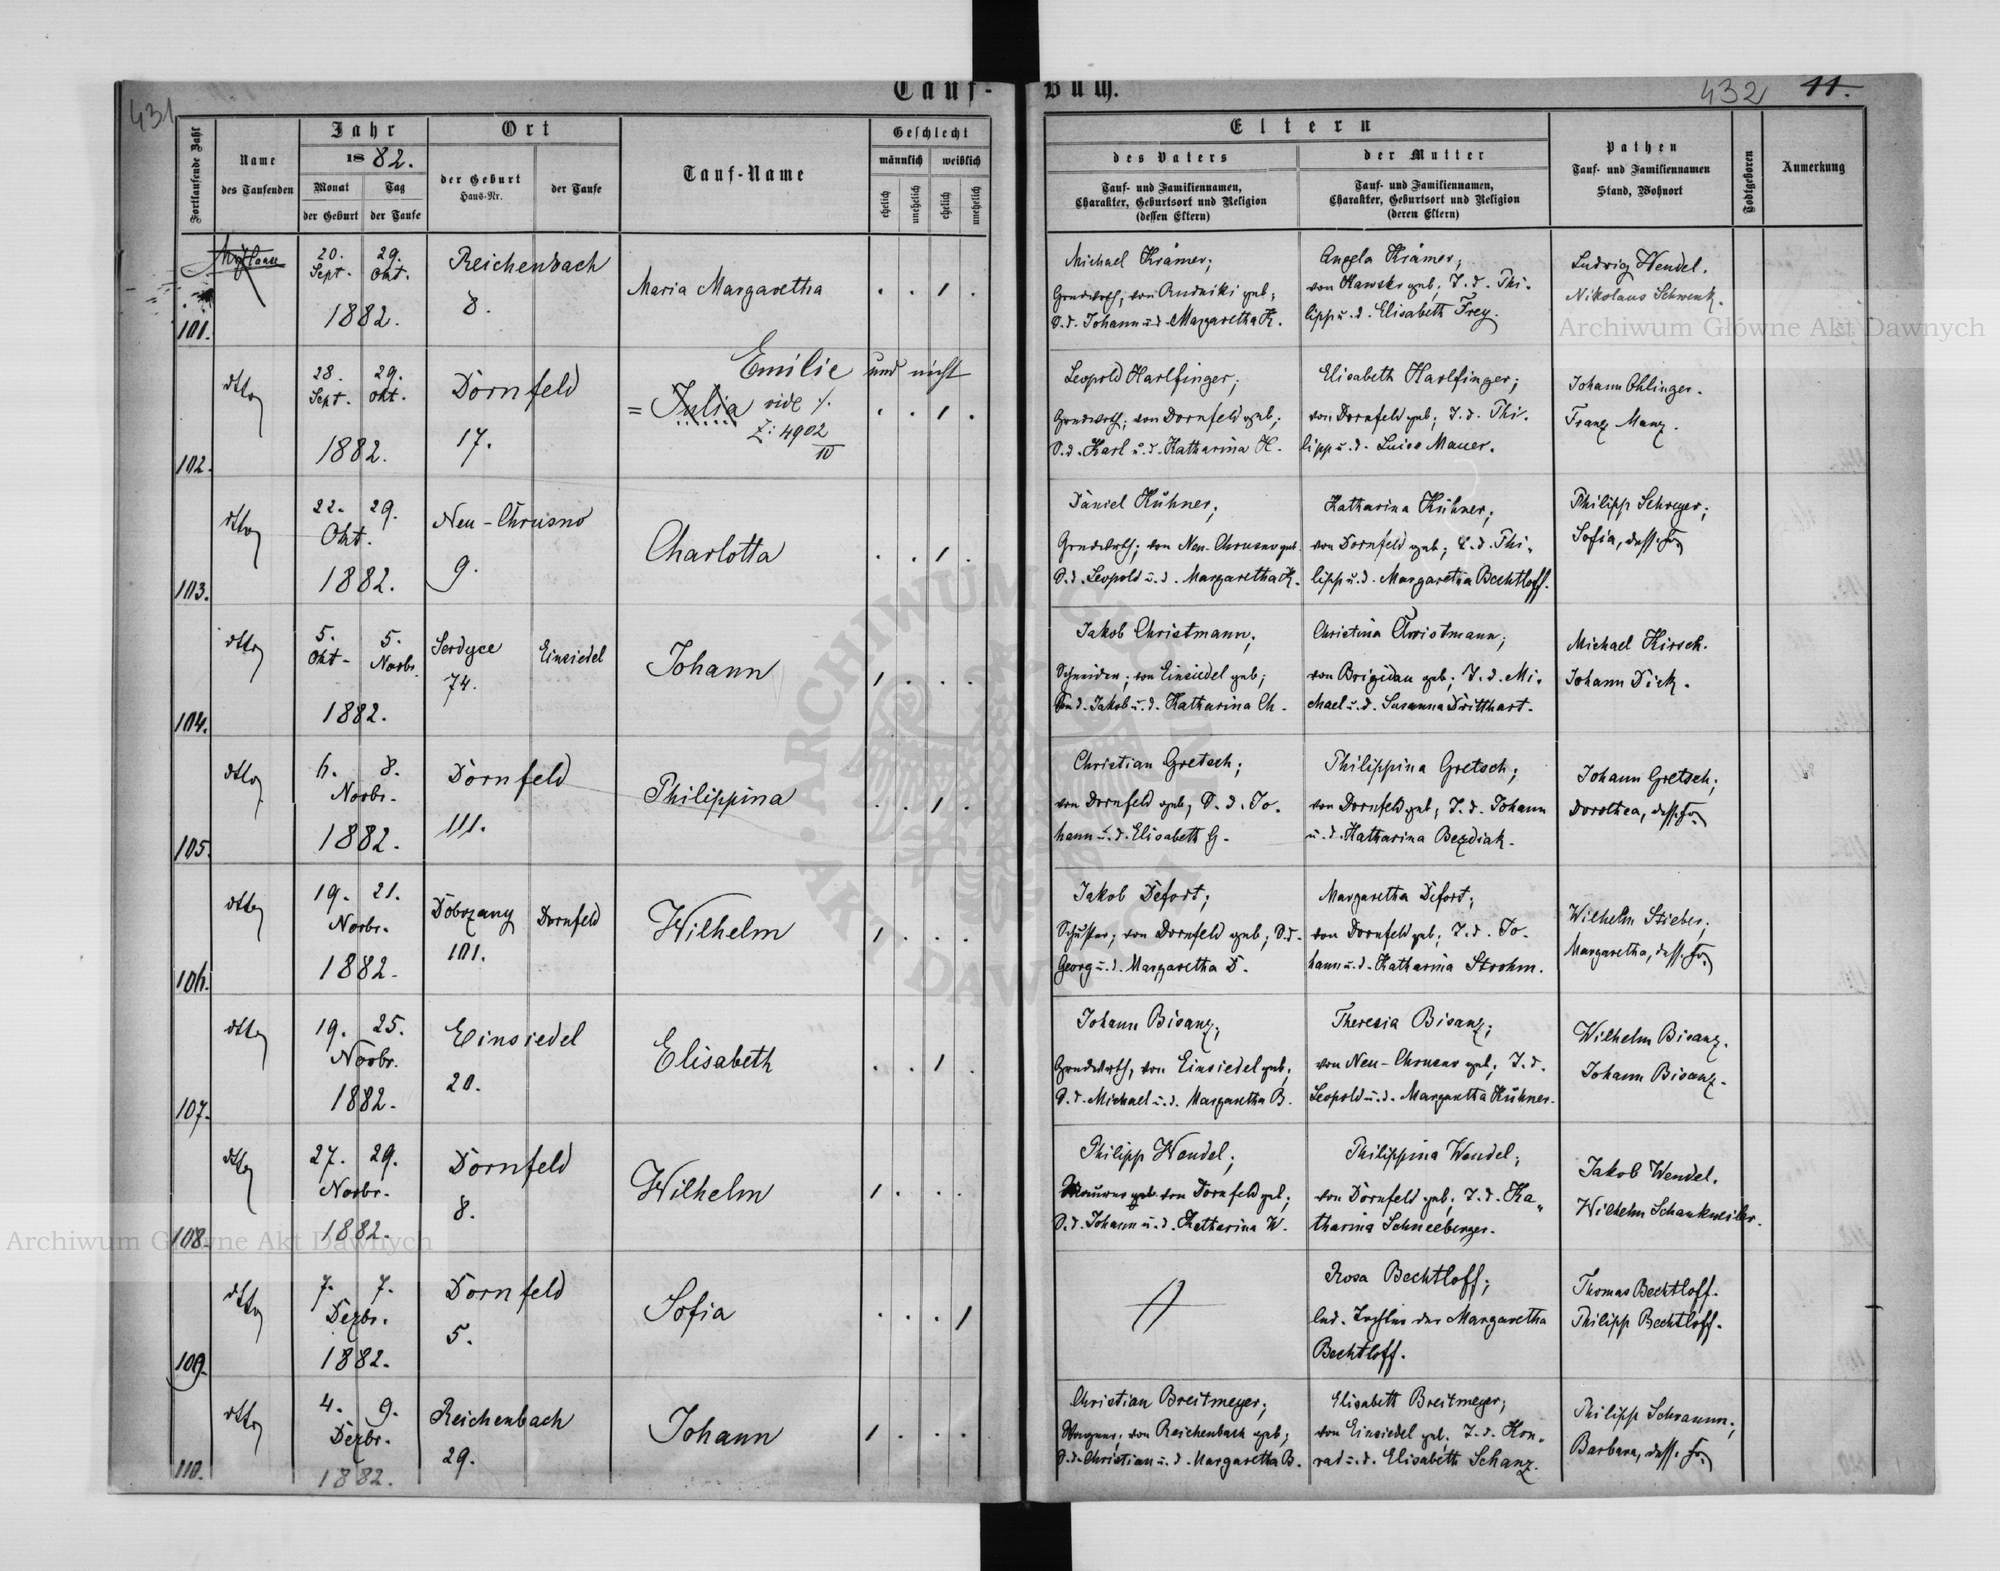 431
Tauf-
Buch.
432 11.
Fortlaufende Zahl
Name
des Taufenden
Jahr
1882.
Monat
Tag
der Geburt
der Taufe
Ort
der Geburt
Haus-Nr.
der Taufe
Tauf-Name
Geschlecht
männlich
weiblich
ehelich
unehelich
ehelich
unehelich
Eltern
des Vaters
Tauf- und Familiennamen,
Charakter, Geburtsort und Religion
(dessen Eltern)
der Mutter
Tauf- und Familiennamen,
Charakter, Geburtsort und Religion
(deren Eltern)
Pathen
Tauf- und Familiennamen
Stand, Wohnort
Todtgeboren
Anmerkung
101.
20. 29.
Sept. Okt.
1882.
Reichenbach
8.
Maria Margaretha
Michael Krämer;
Grundwrth; von Rudniki geb;
S. d. Johann u. d. Margaretha K.
Angela Krämer;
geb; T. d. Phi-
lipp u. d. Elisabeth Frey.
Ludwig Wendel.
Nikolaus Schwenk.
102.
dtto
28. 29.
Sept. Okt.
1882.
Dornfeld
17.
Emilie und nicht
= Julia vide ./.
Z: 4902
IV
Leopold Harlfinger;
Grundwrth; von Dornfeld geb;
S. d. Karl u. d. Katharina H.
Elisabeth Harlfinger;
von Dornfeld geb; T. d. Phi-
lipp u. d. Luise Mauer.
Johann Ohlinger.
Franz Manz.
103.
dtto
22. 29.
Okt.
1882.
Neu-Chrusno
9.
Charlotta
Daniel Kühner;
Grundwrth; von Neu-Chrusno geb.
S. d. Leopold u. d. Margaretha K.
Katharina Kühner;
von Dornfeld geb; T. d. Phi-
lipp u. d. Margaretha Bechtloff.
Philipp Schreyer;
Sofia, dess. Fr.
104.
dtto
5. 5.
Okt. Novbr.
1882.
Serdyce
74.
Einsiedel
Johann
Jakob Christmann;
Schneider; von Einsiedel geb;
S. d. Jakob u. d. Katharina Ch.
Christina Christmann;
von Brigidau geb; T. d. Mi-
chael u. d. Susanna Dritthart.
Michael Hirsch.
Johann Dick.
105.
dtto
6. 8.
Novbr.
1882.
Dornfeld
111.
Philippina
Christian Gretsch;
von Dornfeld geb; S. d. Jo-
hann u. d. Elisabeth G.
Philippina Gretsch;
von Dornfeld geb; T. d. Johann
u. d. Katharina Bezdiak.
Johann Gretsch;
Dorothea, dess. Fr.
106.
dtto
19. 21.
Novbr.
1882.
Dobrzany
101.
Dornfeld
Wilhelm
Jakob Defort;
Schuster; von Dornfeld geb; S. d.
Georg u. d. Margaretha D.
Margaretha Defort;
von Dornfeld geb; T. d. Jo-
hann u. d. Katharina Strohm.
Wilhelm Stieber;
Margaretha, dess. Fr.
107.
dtto
19. 25.
Novbr.
1882.
Einsiedel
20.
Elisabeth
Johann Bisanz;
Grundwrth; von Einsiedel geb;
S. d. Michael u. d. Margaretha B.
Theresia Bisanz;
von Neu-Chrusno geb; T. d.
Leopold u. d. Margaretha Kühner.
Wilhelm Bisanz.
Johann Bisanz.
108.
dtto
27. 29.
Novbr.
1882.
Dornfeld
8.
Wilhelm
Philipp Wendel;
von Dornfeld geb;
S. d. Johann u. d. Katharina W.
Philippina Wendel;
von Dornfeld geb; T. d. Ka-
tharina Schneeberger.
Jakob Wendel.
Wilhelm Schankweiler.
109.
dtto
7. 7.
Dezbr.
1882.
Dornfeld
5.
Sofia
Rosa Bechtloff;
led. Tochter der Margaretha
Bechtloff.
Thomas Bechtloff.
Philipp Bechtloff.
110.
dtto
4. 9.
Dezbr.
1882.
Reichenbach
29.
Johann
Christian Breitmeyer;
Wagner; von Reichenbach geb;
S. d. Christian u. d. Margaretha B.
Elisabeth Breitmeyer;
von Einsiedel geb. T. d. Kon-
rad u. d. Elisabeth Schanz.
Philipp Schramm;
Barbara, dess. Fr.
Archiwum Główne Akt Dawnych
Archiwum Główne Akt Dawnych
ARCHIWUM GŁÓWNE AKT DAWNYCH